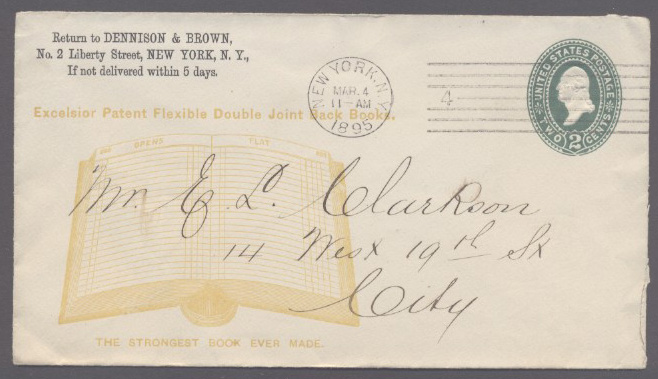 Return to DENNISON & BROWN,
No. 2 Liberty Street, NEW YORK, N. Y.,
If not delivered within 5 days.
NEW YORK, N.Y.
MAR. 4
11-AM
1895
4
UNITED STATES POSTAGE
TWO 2 CENTS
Excelsior Patent Flexible Double Joint Back Books.
OPENS FLAT
Mr. E. L. Clarkson
14 West 19th St
City
THE STRONGEST BOOK EVER MADE.